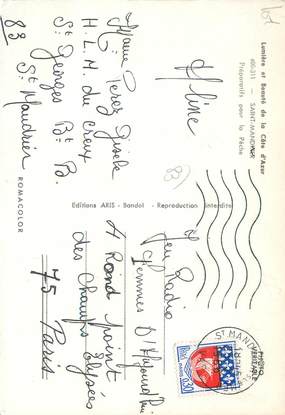 Lumière et Beauté de la Côte d'Azur
SAINT-MANDRIER
Préparatifs pour la Pêche
Aline
Mame Perez Gisèle
H.L.M. du Creux
St Georges Bt B.
St Mandrier
83
83
Editions ARIS - Bandol - Reproduction interdite
ROMACOLOR
Jeu Radio
Femmes D'Aujourd'hui
4 Rond point
des Champs Elysées
75 Paris
PHOTO
VERITABLE
ST MANDRIER
0,30